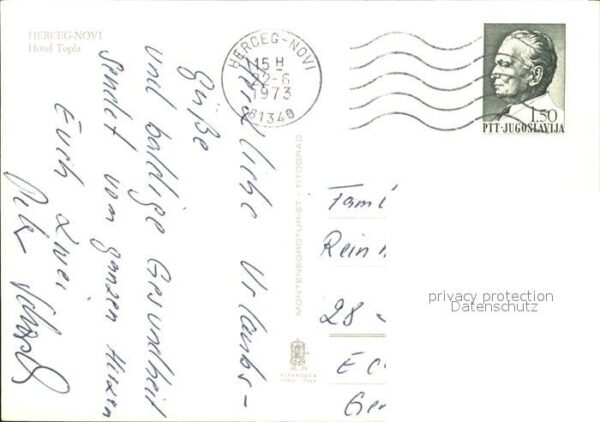 HERCEG-NOVI
Hotel Topla
HERCEG-NOVI
15 H
22-6
1973
81340
1.50
PTT-JUGOSLAVIJA
Herzliche Urlaubs-
grüße
und baldige Gesundheit
sendet vom ganzen Herzen
Euch zwei
MONTENEGROTURIST - TITOGRAD
Fami
Rein
28
privacy protection
Datenschutz